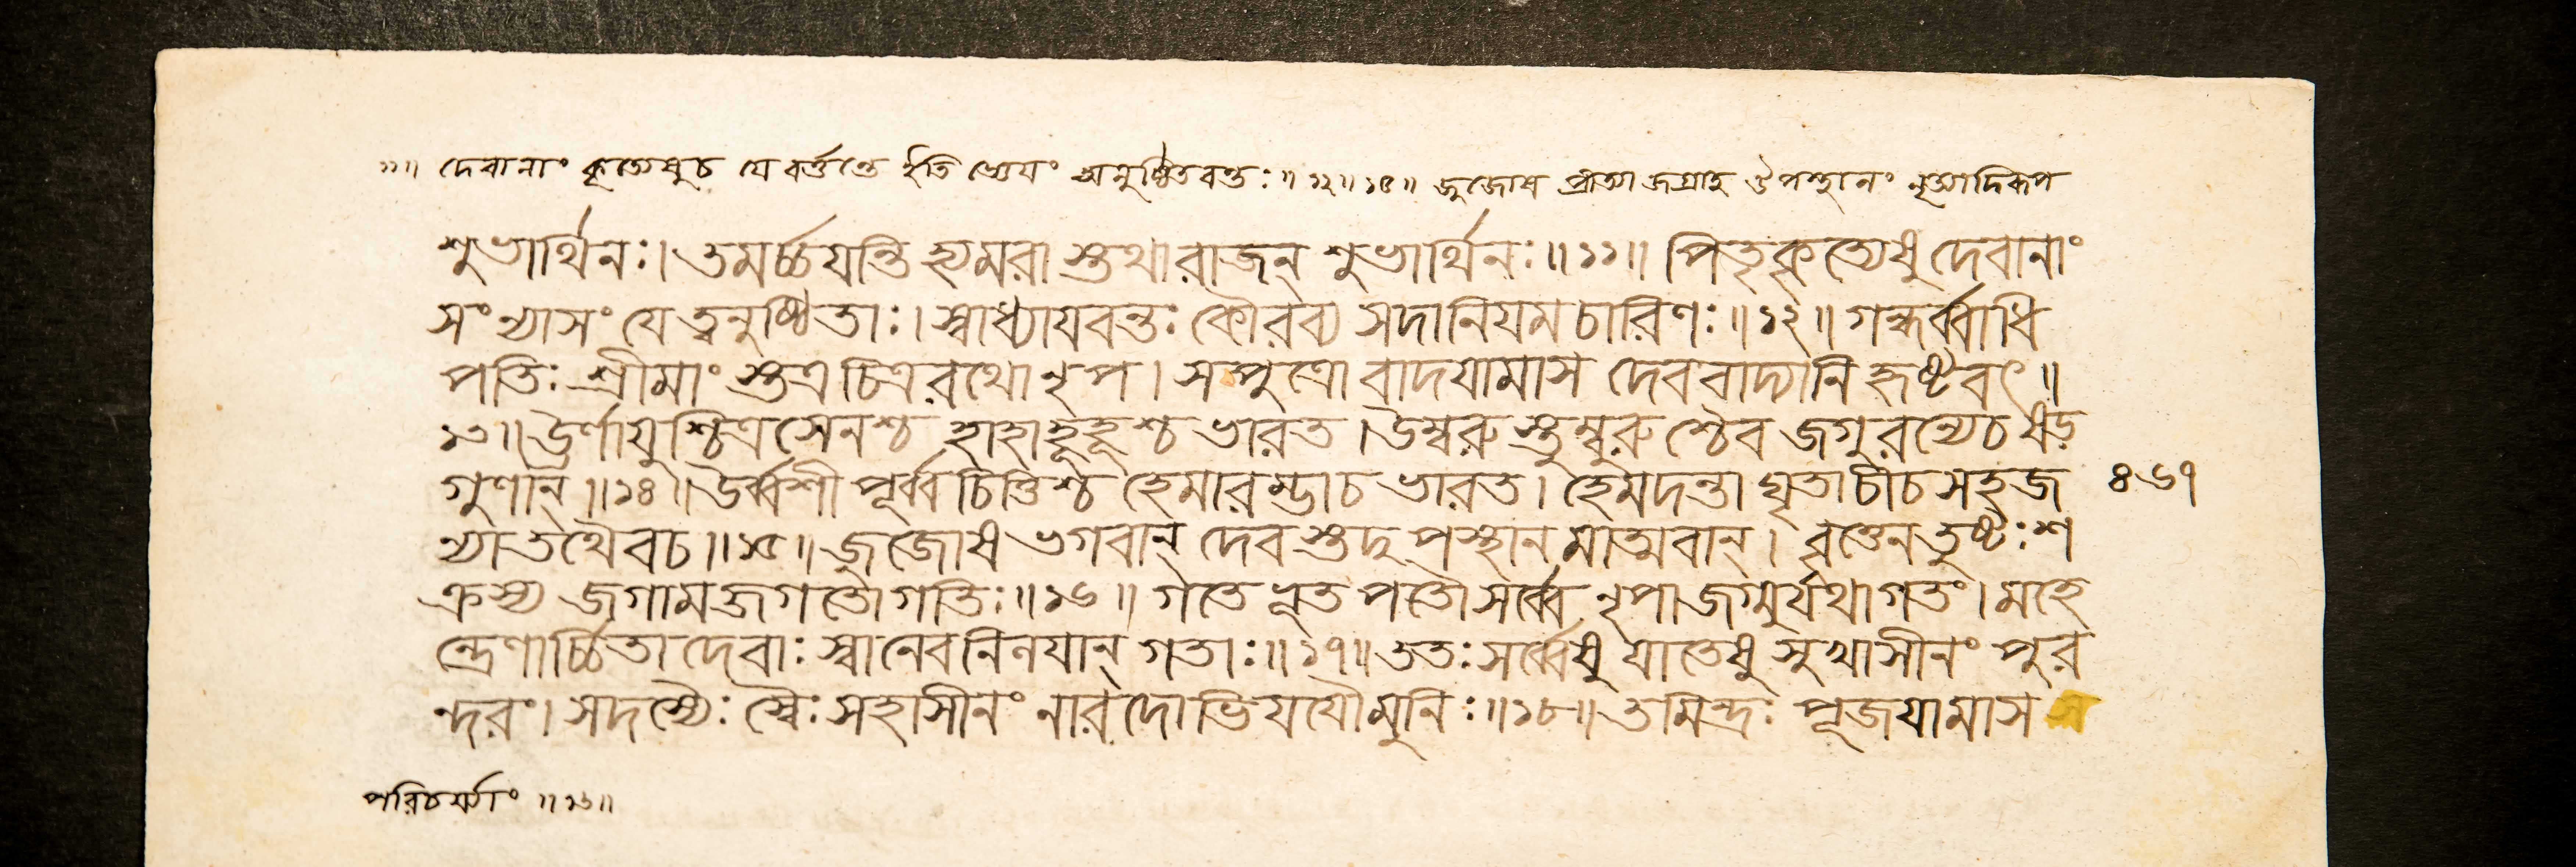 ॥ দেবানাং কৃত্যেষুচ যে বর্ত্তন্তে ইতি জ্ঞেয়ং অনুষ্ঠিতবন্তঃ ॥ ১২ ॥ ১৫ ॥ জুজোষ প্রীত্যা জগ্রাহ উপস্থানং নৃত্যাদিরূপ
শুভার্থিনঃ। তমর্চ্চযন্তি হ্যমরা স্তথা রাজন্ শুভার্থিনঃ ॥ ১১ ॥ পিতৃকৃত্যেষু দেবানাং
সংন্যাসং যে ত্বনুষ্ঠিতাঃ। স্বাধ্যাযবন্তঃ কৌরব্য সদানিযমচারিণঃ ॥ ১২ ॥ গন্ধর্ব্বাধি
পতিঃ শ্রীমাং স্তত্র চিত্ররথো নৃপ। সপুত্রো বাদযামাস দেববাদ্যানি হৃষ্টবৎ ॥
১৩ ॥ ঊর্ণাযুশ্চিত্রসেনশ্চ হাহাহূহূশ্চ ভারত। উম্বরুস্তুম্বুরুশ্চৈব জগুরন্যেচ ষড়্
গুণান্ ॥ ১৪ ॥ উর্ব্বশী পূর্ব্বচিত্তিশ্চ হেমারম্ভাচ ভারত। হেমদন্তা ঘৃতাচীচ সহজ ৪৬৭
ন্যাতথৈবচ ॥ ১৫ ॥ জুজোষ ভগবান্ দেব স্তদুপস্থানমাত্মবান্। বৃত্তেন তুষ্টঃ শ
ক্রস্য জগাম জগতোগতিঃ ॥ ১৬ ॥ গতে ভূতপতৌ সর্ব্বে নৃপা জগ্মুর্যথাগতং। মহে
ন্দ্রেণার্চ্চিতা দেবাঃ স্বানেবনিলযান্ গতাঃ ॥ ১৭ ॥ ততঃ সর্ব্বেষু যাতেষু সুখাসীনং পুর
ন্দরং। সদস্যৈঃ স্বৈঃ সহাসীনং নারদোভিযযৌ মুনিঃ ॥ ১৮ ॥ তমিন্দ্রঃ পূজযামাস
পরিচর্য্যাং ॥ ১৬ ॥